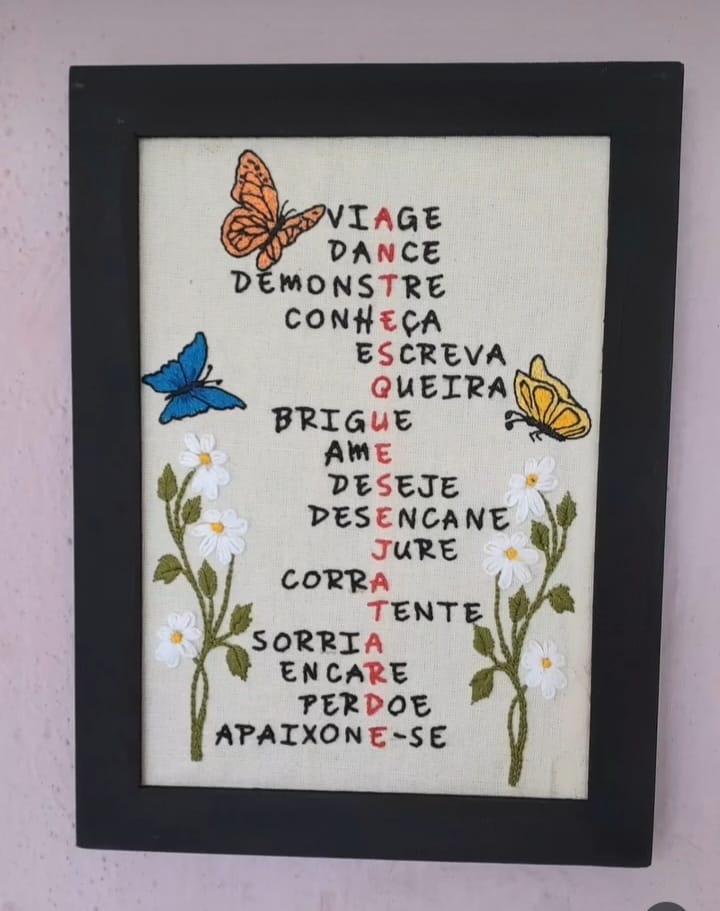 VIAGE
DANCE
DEMONSTRE
CONHEÇA
ESCREVA
QUEIRA
BRIGUE
AME
DESEJE
DESENCANE
JURE
CORRA
TENTE
SORRIA
ENCARE
PERDOE
APAIXONE-SE